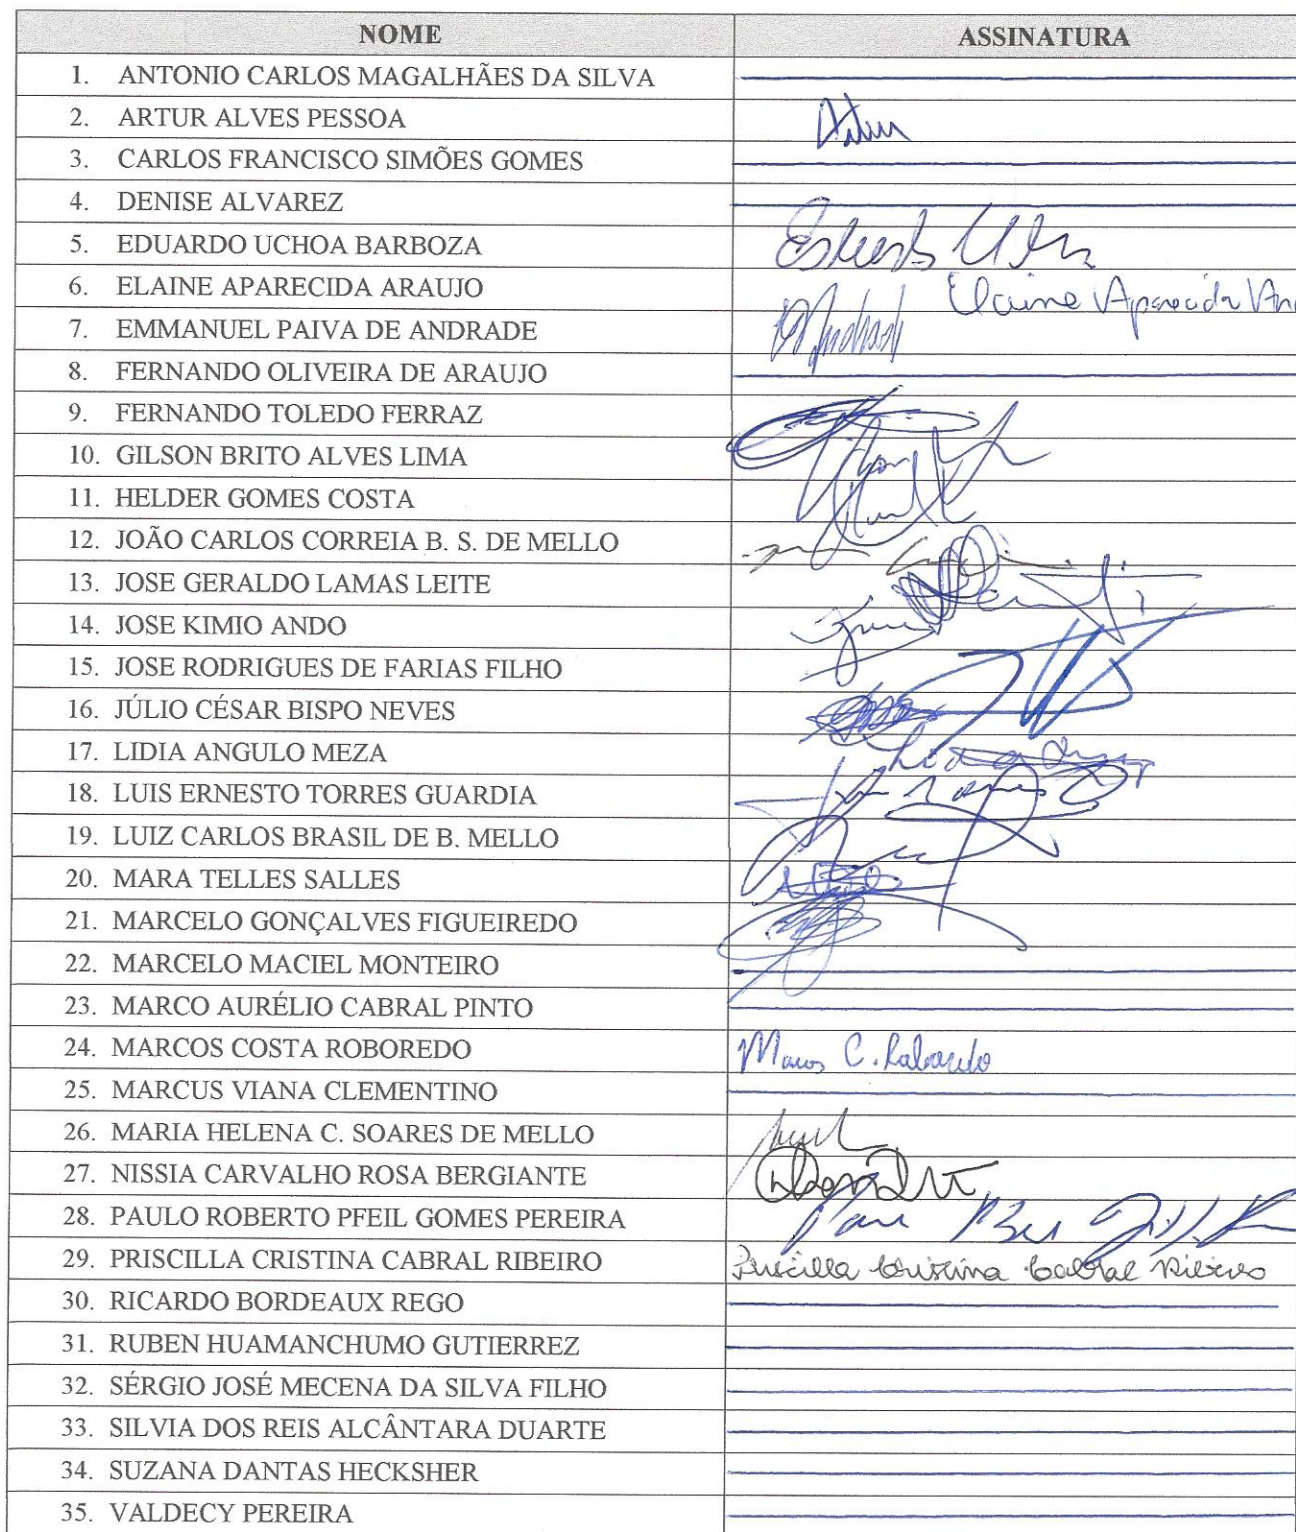 NOME ASSINATURA
1. ANTONIO CARLOS MAGALHÃES DA SILVA
2. ARTUR ALVES PESSOA Artur
3. CARLOS FRANCISCO SIMÕES GOMES
4. DENISE ALVAREZ
5. EDUARDO UCHOA BARBOZA
6. ELAINE APARECIDA ARAUJO Elaine Aparecida
7. EMMANUEL PAIVA DE ANDRADE
8. FERNANDO OLIVEIRA DE ARAUJO
9. FERNANDO TOLEDO FERRAZ
10. GILSON BRITO ALVES LIMA
11. HELDER GOMES COSTA
12. JOÃO CARLOS CORREIA B. S. DE MELLO
13. JOSE GERALDO LAMAS LEITE
14. JOSE KIMIO ANDO
15. JOSE RODRIGUES DE FARIAS FILHO
16. JÚLIO CÉSAR BISPO NEVES
17. LIDIA ANGULO MEZA
18. LUIS ERNESTO TORRES GUARDIA
19. LUIZ CARLOS BRASIL DE B. MELLO
20. MARA TELLES SALLES
21. MARCELO GONÇALVES FIGUEIREDO
22. MARCELO MACIEL MONTEIRO
23. MARCO AURÉLIO CABRAL PINTO
24. MARCOS COSTA ROBOREDO Marcos C. Roboredo
25. MARCUS VIANA CLEMENTINO
26. MARIA HELENA C. SOARES DE MELLO
27. NISSIA CARVALHO ROSA BERGIANTE
28. PAULO ROBERTO PFEIL GOMES PEREIRA
29. PRISCILLA CRISTINA CABRAL RIBEIRO Priscilla Cristina Cabral Ribeiro
30. RICARDO BORDEAUX REGO
31. RUBEN HUAMANCHUMO GUTIERREZ
32. SÉRGIO JOSÉ MECENA DA SILVA FILHO
33. SILVIA DOS REIS ALCÂNTARA DUARTE
34. SUZANA DANTAS HECKSHER
35. VALDECY PEREIRA